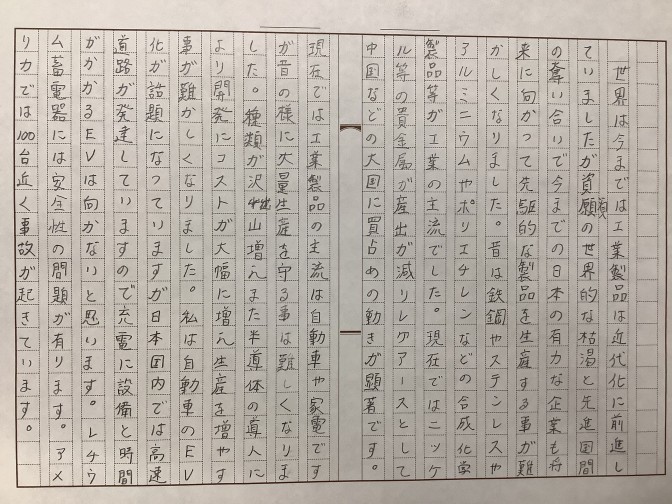 世界は今までは工業製品は近代化に前進し
ていましたが資源の世界的な枯渇と先進国間
の奪い合いで今までの日本の有力な企業も将
来に向かって先駆的な製品を生産する事が難
かしくなりました。昔は鉄鋼やステンレスや
アルミニウムやポリエチレンなどの合成化学
製品等が工業の主流でした。現在ではニッケ
ル等の貴金属が産出が減りレアアースとして
中国などの大国に買占めの動きが顕著です。
現在では工業製品の主流は自動車や家電です
が昔の様に大量生産を守る事は難しくなりま
した。種類が沢山増えまた半導体の導入に
より開発にコストが大幅に増え生産を増やす
事が難がしくなりました。私は自動車のEV
化が話題になっていますが日本国内では高速
道路が発達していますので充電に設備と時間
ががかるEVは向かないと思います。レチウ
ム蓄電器には安全性の問題が有ります。アメ
リカでは100台近く事故が起きています。